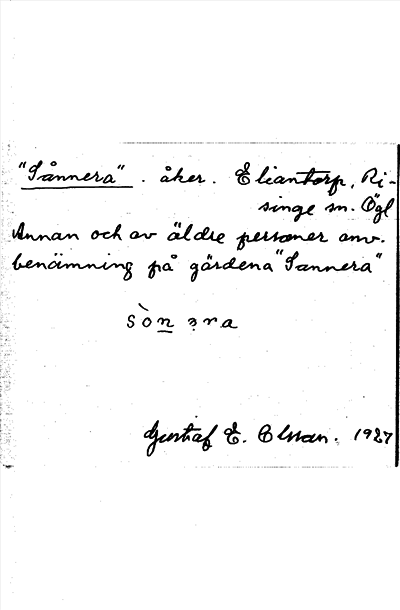 "Sånnera". åker. Eliantorp, Ri-
singe sn. Ögl
Annan och av äldre personer anv.
benämning på gärdena "Sannera"
sòn ɜra
Gustaf E. Olsson. 1927